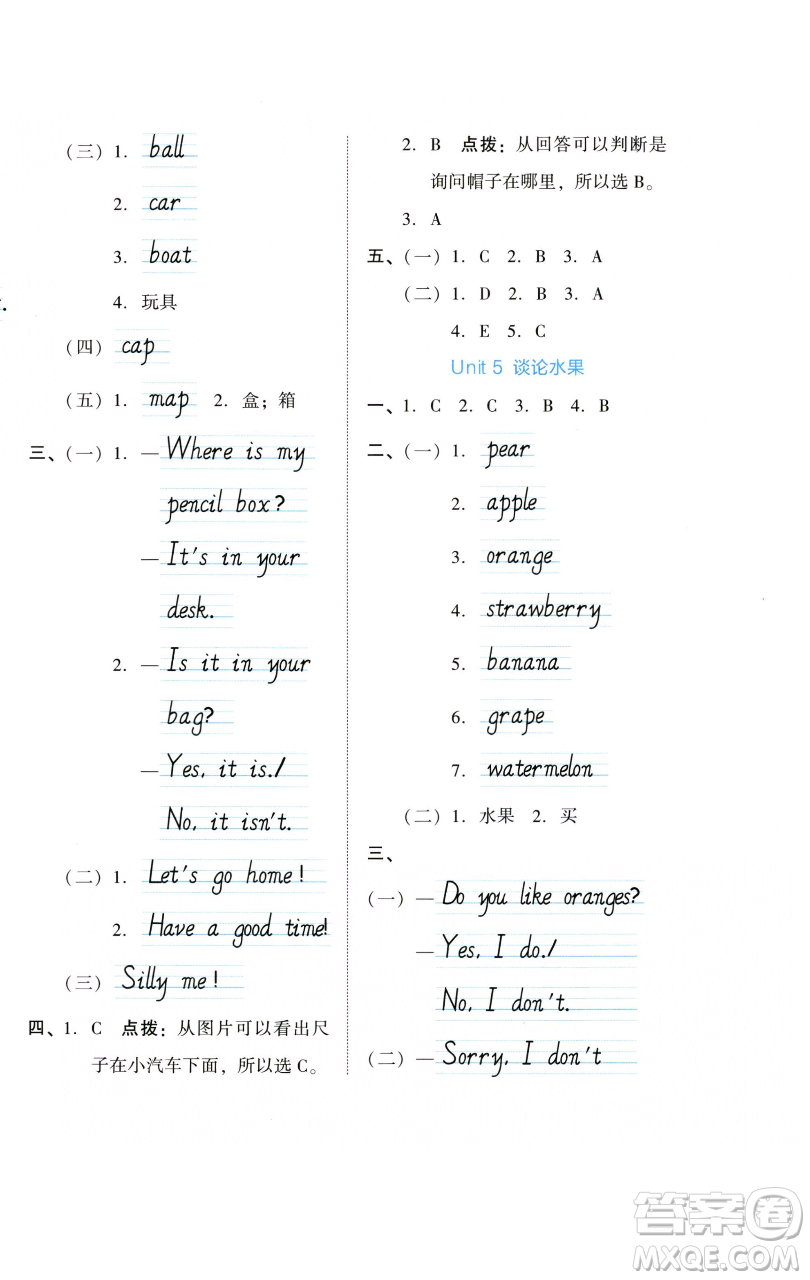 (三) 1. ball
2. car
3. boat
4. 玩具
(四) cap
(五) 1. map 2. 盒；箱
三、(一) 1. —Where is my
pencil box?
—It's in your
desk.
2. —Is it in your
bag?
—Yes, it is./
No, it isn't.
(二) 1. Let's go home!
2. Have a good time!
(三) Silly me!
四、1. C 点拨：从图片可以看出尺
子在小汽车下面，所以选 C。
2. B 点拨：从回答可以判断是
询问帽子在哪里，所以选 B。
3. A
五、(一) 1. C 2. B 3. A
(二) 1. D 2. B 3. A
4. E 5. C
Unit 5 谈论水果
一、1. C 2. C 3. B 4. B
二、(一) 1. pear
2. apple
3. orange
4. strawberry
5. banana
6. grape
7. watermelon
(二) 1. 水果 2. 买
三、
(一) —Do you like oranges?
—Yes, I do./
No, I don't.
(二) —Sorry, I don't
答案圈
MXQE.COM